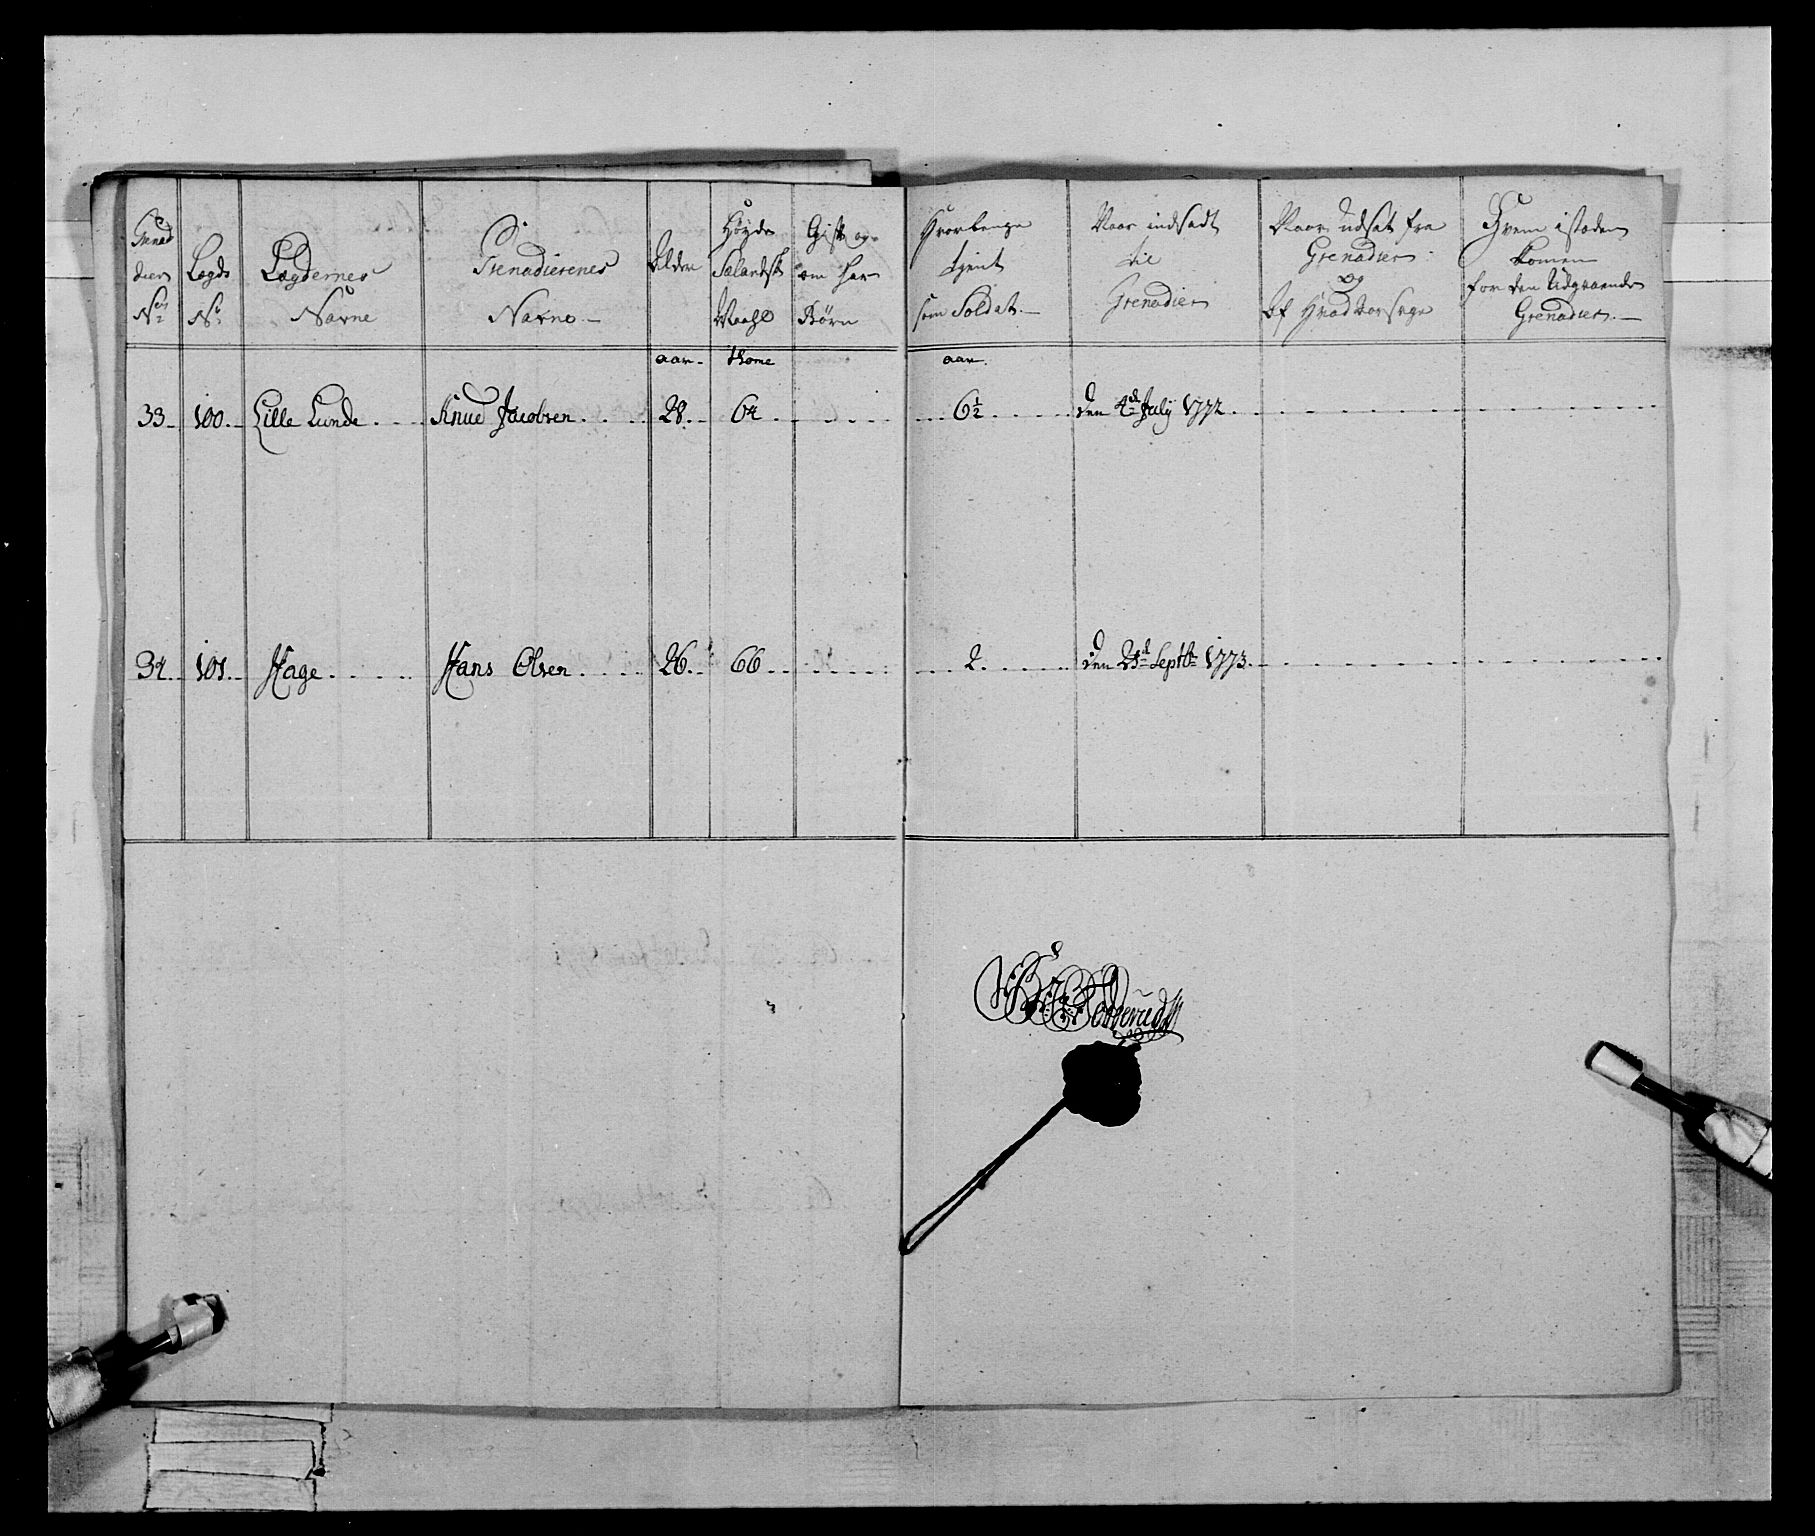 Grenad
dier
No
Lægds
No
Lægdernes
Navne
Grenadierenes
Navne
Alder
Høyde
Sælandsk
Maahl
Gift og
om har
Børn
Hvorlænge
tient
som Soldat.
Naar indsadt
til
Grenadier
Naar udsat fra
Grenadier
og
Af Hvad Aarsage
Hvem i steden
komen
for den Udgaaende
Grenadier.
aar. tkome aar.
33. 100. Lille Lunde Knud Jacobsen 28. 64. 6½ den 4de July 1772.
34. 101. Hage Hans Olsen 26. 66. 2. den 21de Septbr 1773.